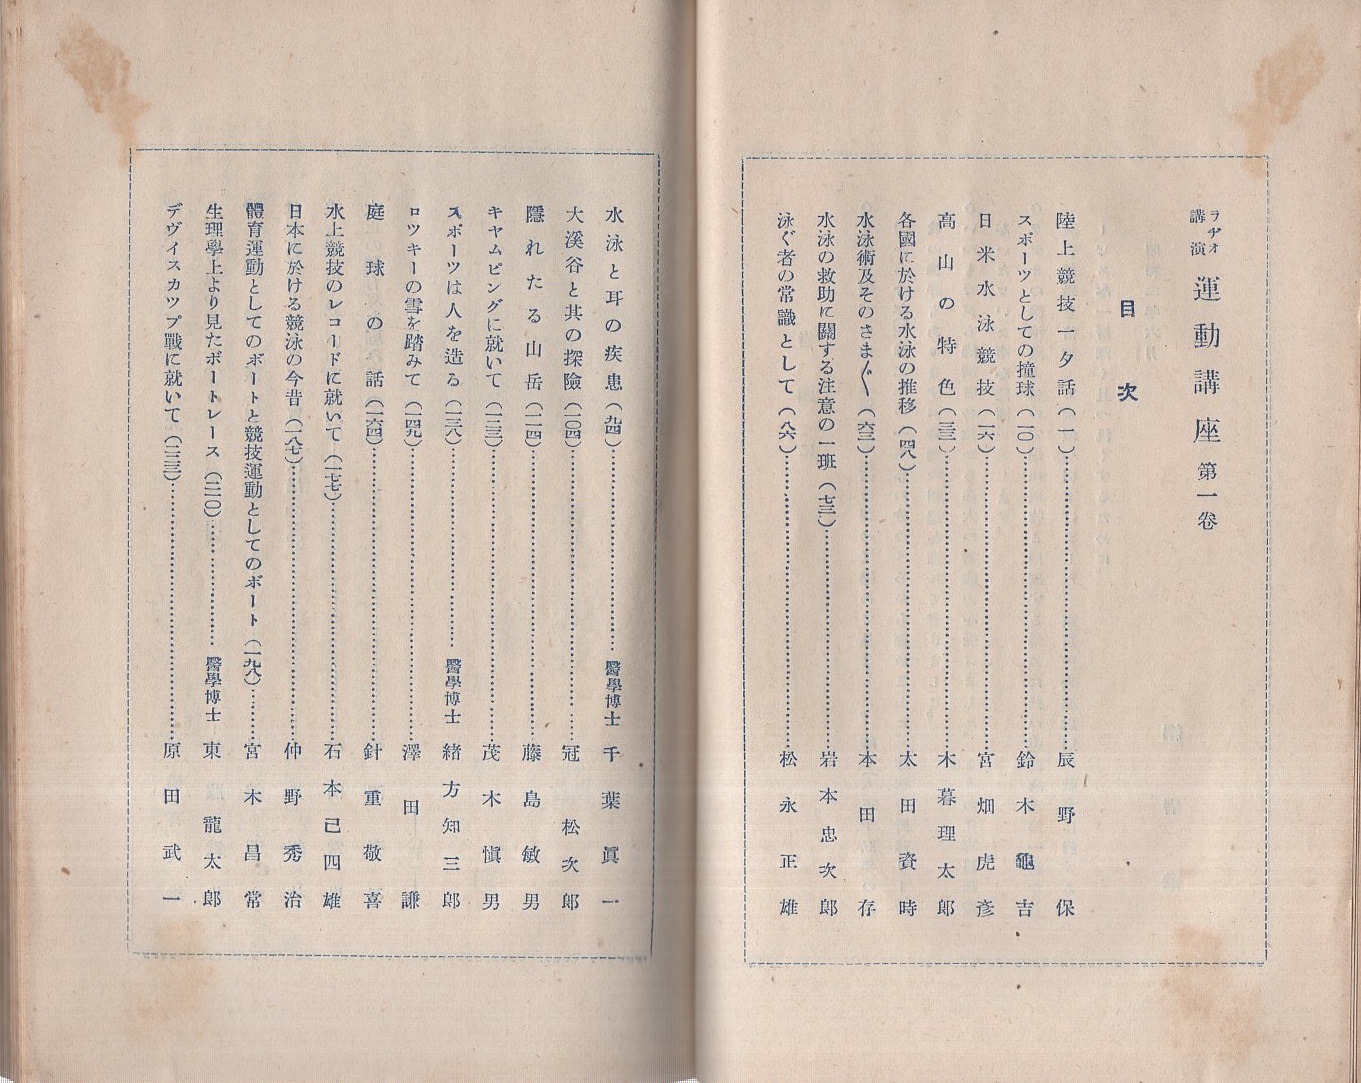 ラヂオ
講演
運動講座 第一卷
目次
陸上競技一夕話(一)……辰野保
スポーツとしての撞球(一〇)……鈴木龜吉
日米水泳競技(一六)……宮畑虎彥
高山の特色(三三)……木暮理太郎
各國に於ける水泳の推移(四八)……太田資時
水泳術及そのさま〴〵(六三)……本田存
水泳の救助に關する注意の一班(七三)……岩本忠次郎
泳ぐ者の常識として(八六)……松永正雄
水泳と耳の疾患(九四)……醫學博士 千葉眞一
大溪谷と其の探險(一〇四)……冠松次郎
隱れたる山岳(一一四)……藤島敏男
キヤムピングに就いて(一二三)……茂木愼男
スポーツは人を造る(一三八)……醫學博士 緒方知三郎
ロツキーの雪を踏みて(一四九)……澤田謙
庭球の話(一六四)……針重敬喜
水上競技のレコードに就いて(一七七)……石本己四雄
日本に於ける競泳の今昔(一八七)……仲野秀治
體育運動としてのボートと競技運動としてのボート(一九八)……宮木昌常
生理學上より見たボートレース(二一〇)……醫學博士 東龍太郎
デヴイスカツプ戰に就いて(二三三)……原田武一